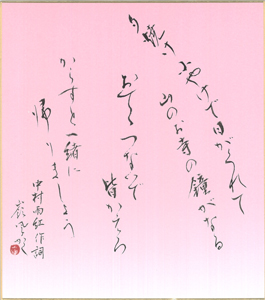 夕焼け小やけで日がくれて
山のお寺の鐘がなる
おてゝつないで
皆かえろ
からすと一緒に
帰りましょう
中村雨紅作詞